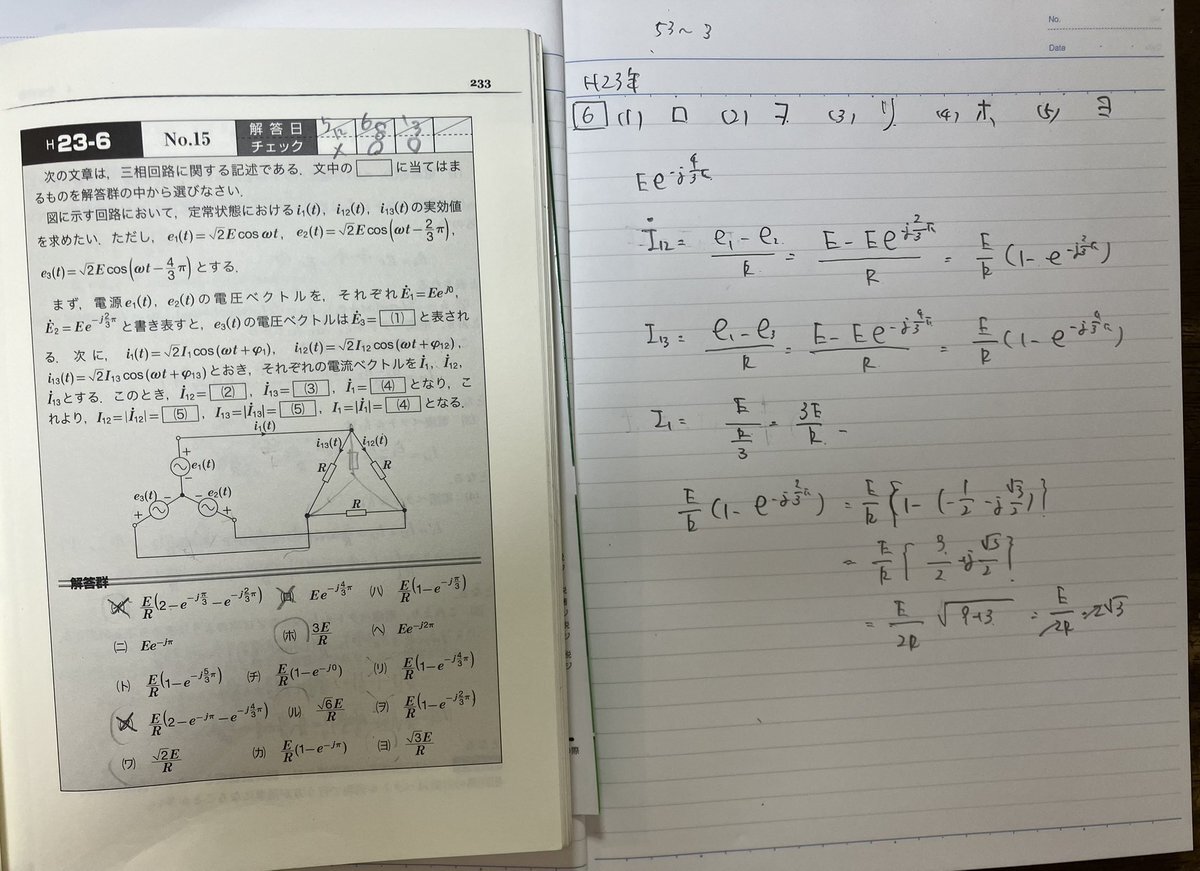 233
H23-6 No.15 解答日 チェック
5/12 6/8 1/3
× 0 0
次の文章は,三相回路に関する記述である.文中の□に当てはまるものを解答群の中から選びなさい.
図に示す回路において,定常状態におけるi₁(t), i₁₂(t), i₁₃(t)の実効値
を求めたい.ただし, e₁(t)=√2E cos ωt, e₂(t)=√2E cos(ωt−2/3π),
e₃(t)=√2E cos(ωt−4/3π)とする.
まず,電源e₁(t), e₂(t)の電圧ベクトルを,それぞれĖ₁=Ee^{j0},
Ė₂=Ee^{−j2/3π}と書き表すと, e₃(t)の電圧ベクトルはĖ₃=(1)と表され
る.次に, i₁(t)=√2I₁cos(ωt+φ₁), i₁₂(t)=√2I₁₂cos(ωt+φ₁₂),
i₁₃(t)=√2I₁₃cos(ωt+φ₁₃)とおき,それぞれの電流ベクトルをİ₁, İ₁₂,
İ₁₃とする.このとき, İ₁₂=(2), İ₁₃=(3), İ₁=(4)となり,こ
れより, I₁₂=|İ₁₂|=(5), I₁₃=|İ₁₃|=(5), I₁=|İ₁|=(4)となる.
i₁(t)
i₁₃(t) i₁₂(t)
+ e₁(t) − R R
e₃(t) − − e₂(t) R
+ +
解答群
E/R(2−e^{−jπ/3}−e^{−j2/3π}) (ロ) Ee^{−j4/3π} (ハ) E/R(1−e^{−jπ/3})
(ニ) Ee^{−jπ} (ホ) 3E/R (ヘ) Ee^{−j2π}
(ト) E/R(1−e^{−j5/3π}) (チ) E/R(1−e^{−j0}) (リ) E/R(1−e^{−j4/3π})
E/R(2−e^{−jπ}−e^{−j4/3π}) (ル) √6E/R (ヲ) E/R(1−e^{−j2/3π})
(ワ) √2E/R (カ) E/R(1−e^{−jπ}) (ヨ) √3E/R
No.
Date
53~3
H23年
6 (1) ロ (2) ヲ (3) リ (4) ホ (5) ヨ
Ee^{−j4/3π}
İ₁₂= (e₁−e₂)/R = (E−Ee^{−j2/3π})/R = E/R(1−e^{−j2/3π})
I₁₃= (e₁−e₃)/R = (E−Ee^{−j4/3π})/R = E/R(1−e^{−j4/3π})
I₁= E/(R/3) = 3E/R
E/R(1−e^{−j2/3π}) = E/R{1−(−1/2−j√3/2)}
= E/R{3/2+j√3/2}
= E/2R √(9+3) = E/2R 2√3